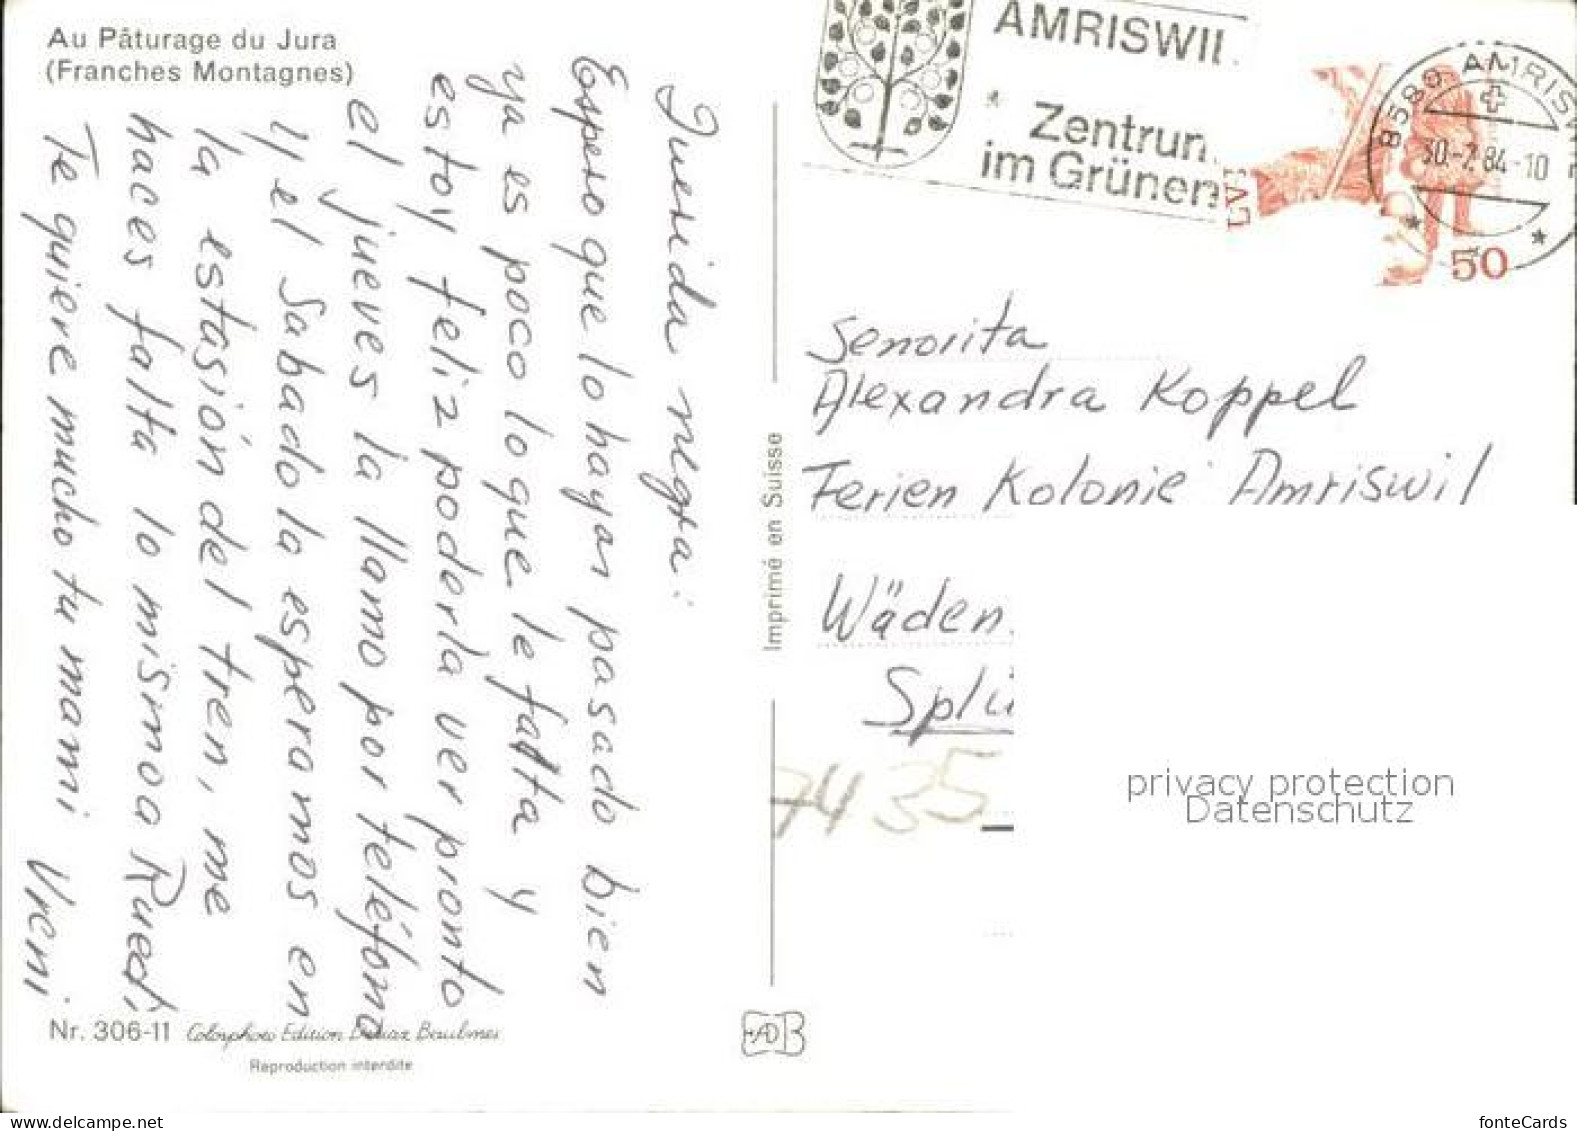 Au Pâturage du Jura
(Franches Montagnes)
Querida negra:
Espero que lo hayan pasado bien
ya es poco lo que le falta y
estoy feliz poderla ver pronto
el jueves la llamo por teléfono
y el Sabado la esperamos en
la estasión del tren, me
haces falta lo mismo a Ruedi,
Te quiere mucho tu mami Vreni
Nr. 306-11 Colorphoto Edition Beaulmes
Reproduction interdite
Imprimé en Suisse
AMRISWIL
Zentrum
im Grünen
8580 AMRISWIL
30.-7.84-10
50
Senorita
Alexandra Koppel
Ferien Kolonie Amriswil
Wäden
Splü
7435
privacy protection
Datenschutz
www.delcampe.net
fonteCards